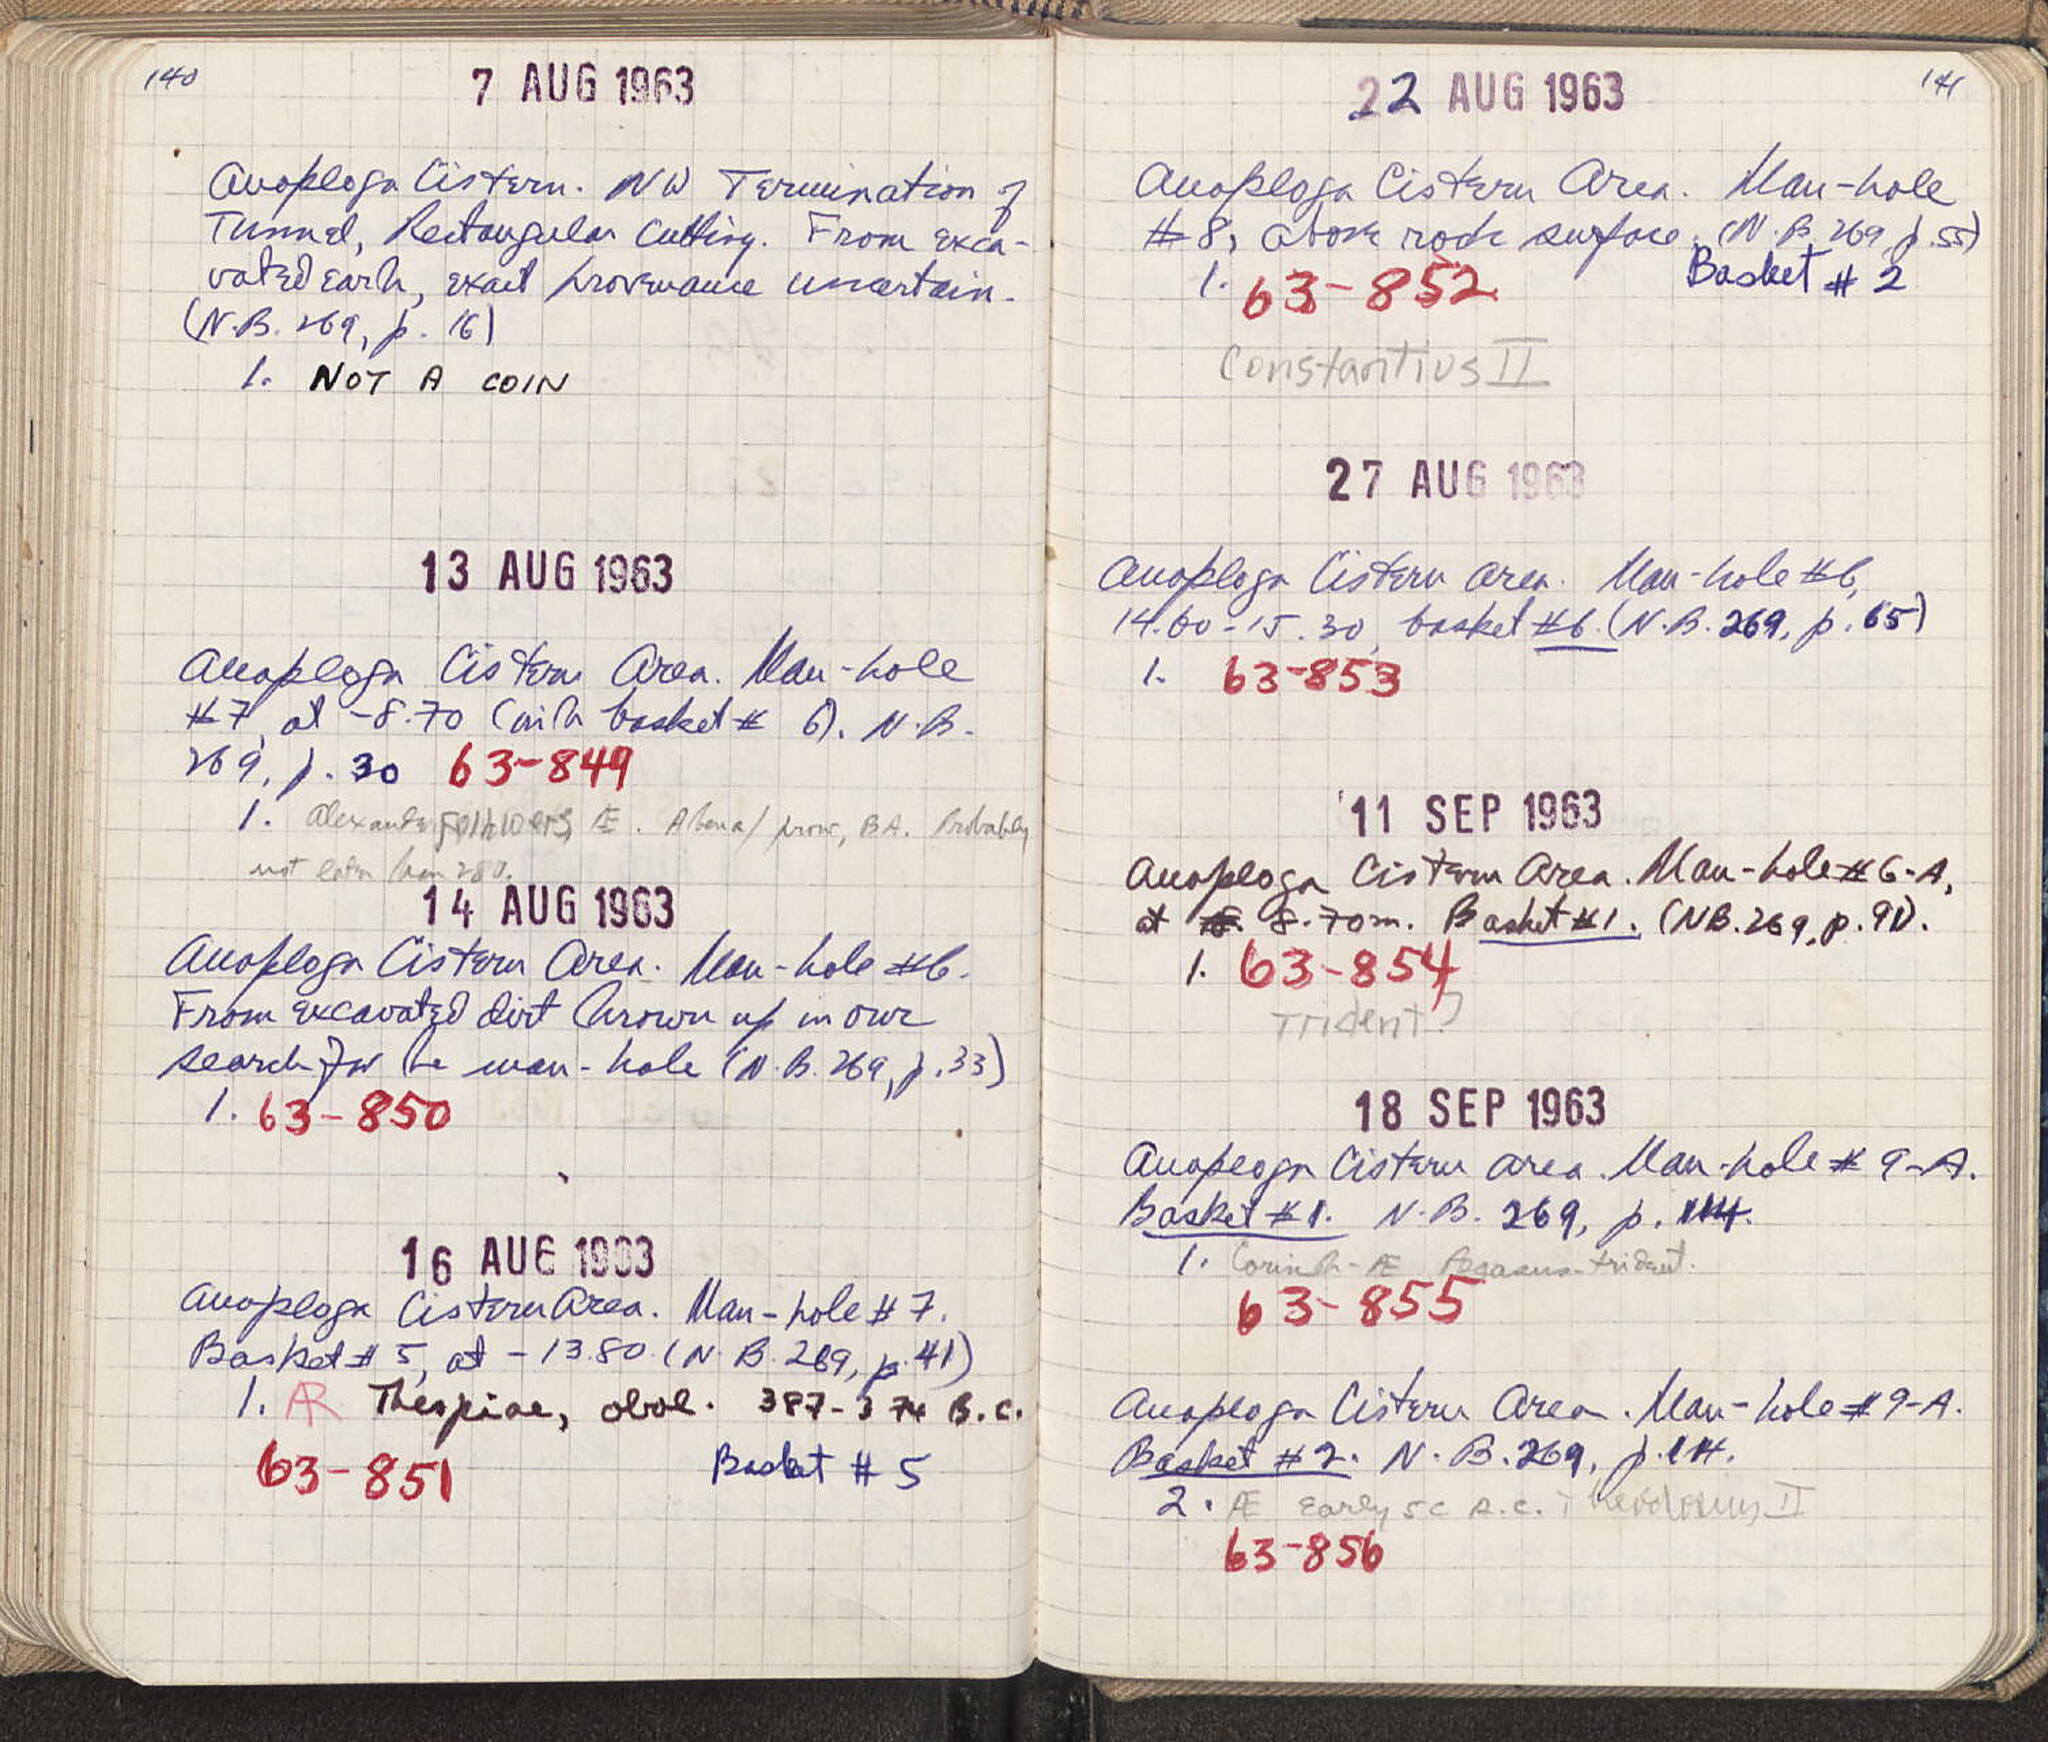 140
7 AUG 1963
Anaploga Cistern. NW Termination of
Tunnel, Rectangular Cutting. From exca-
vated earth, exact provenance uncertain.
(N.B. 269, p. 16)
1. NOT A COIN
13 AUG 1963
Anaploga Cistern Area. Man-hole
#7, at -8.70 (with basket # 6). N.B.
269, p. 30 63-849
1. Alexander followers, Æ. Athena/prow, BA. Probably
not later than 280.
14 AUG 1963
Anaploga Cistern Area. Man-hole #6.
From excavated dirt thrown up in our
search for the man-hole (N.B. 269, p. 33)
1. 63-850
16 AUG 1963
Anaploga Cistern Area. Man-hole #7.
Basket #5, at -13.80 (N.B. 269, p. 41)
1. AR Thespiae, obol. 387-374 B.C.
63-851 Basket #5
141
22 AUG 1963
Anaploga Cistern Area. Man-hole
#8, above rock surface. (N.B. 269 p. 55)
1. 63-852 Basket #2
Constantius II
27 AUG 1963
Anaploga Cistern Area. Man-hole #6,
14.60-15.30, basket #6. (N.B. 269, p. 65)
1. 63-853
11 SEP 1963
Anaploga Cistern Area. Man-hole #6-A,
at 8.70m. Basket #1. (NB. 269, p. 91).
1. 63-854
Trident?
18 SEP 1963
Anaploga Cistern Area. Man-hole # 9-A.
Basket #1. N.B. 269, p. 114.
1. Corinth - Æ Pegasus - trident.
63-855
Anaploga Cistern Area. Man-hole #9-A.
Basket #2. N.B. 269, p. 114.
2. Æ Early 5 c A.C. Theodosius II
63-856